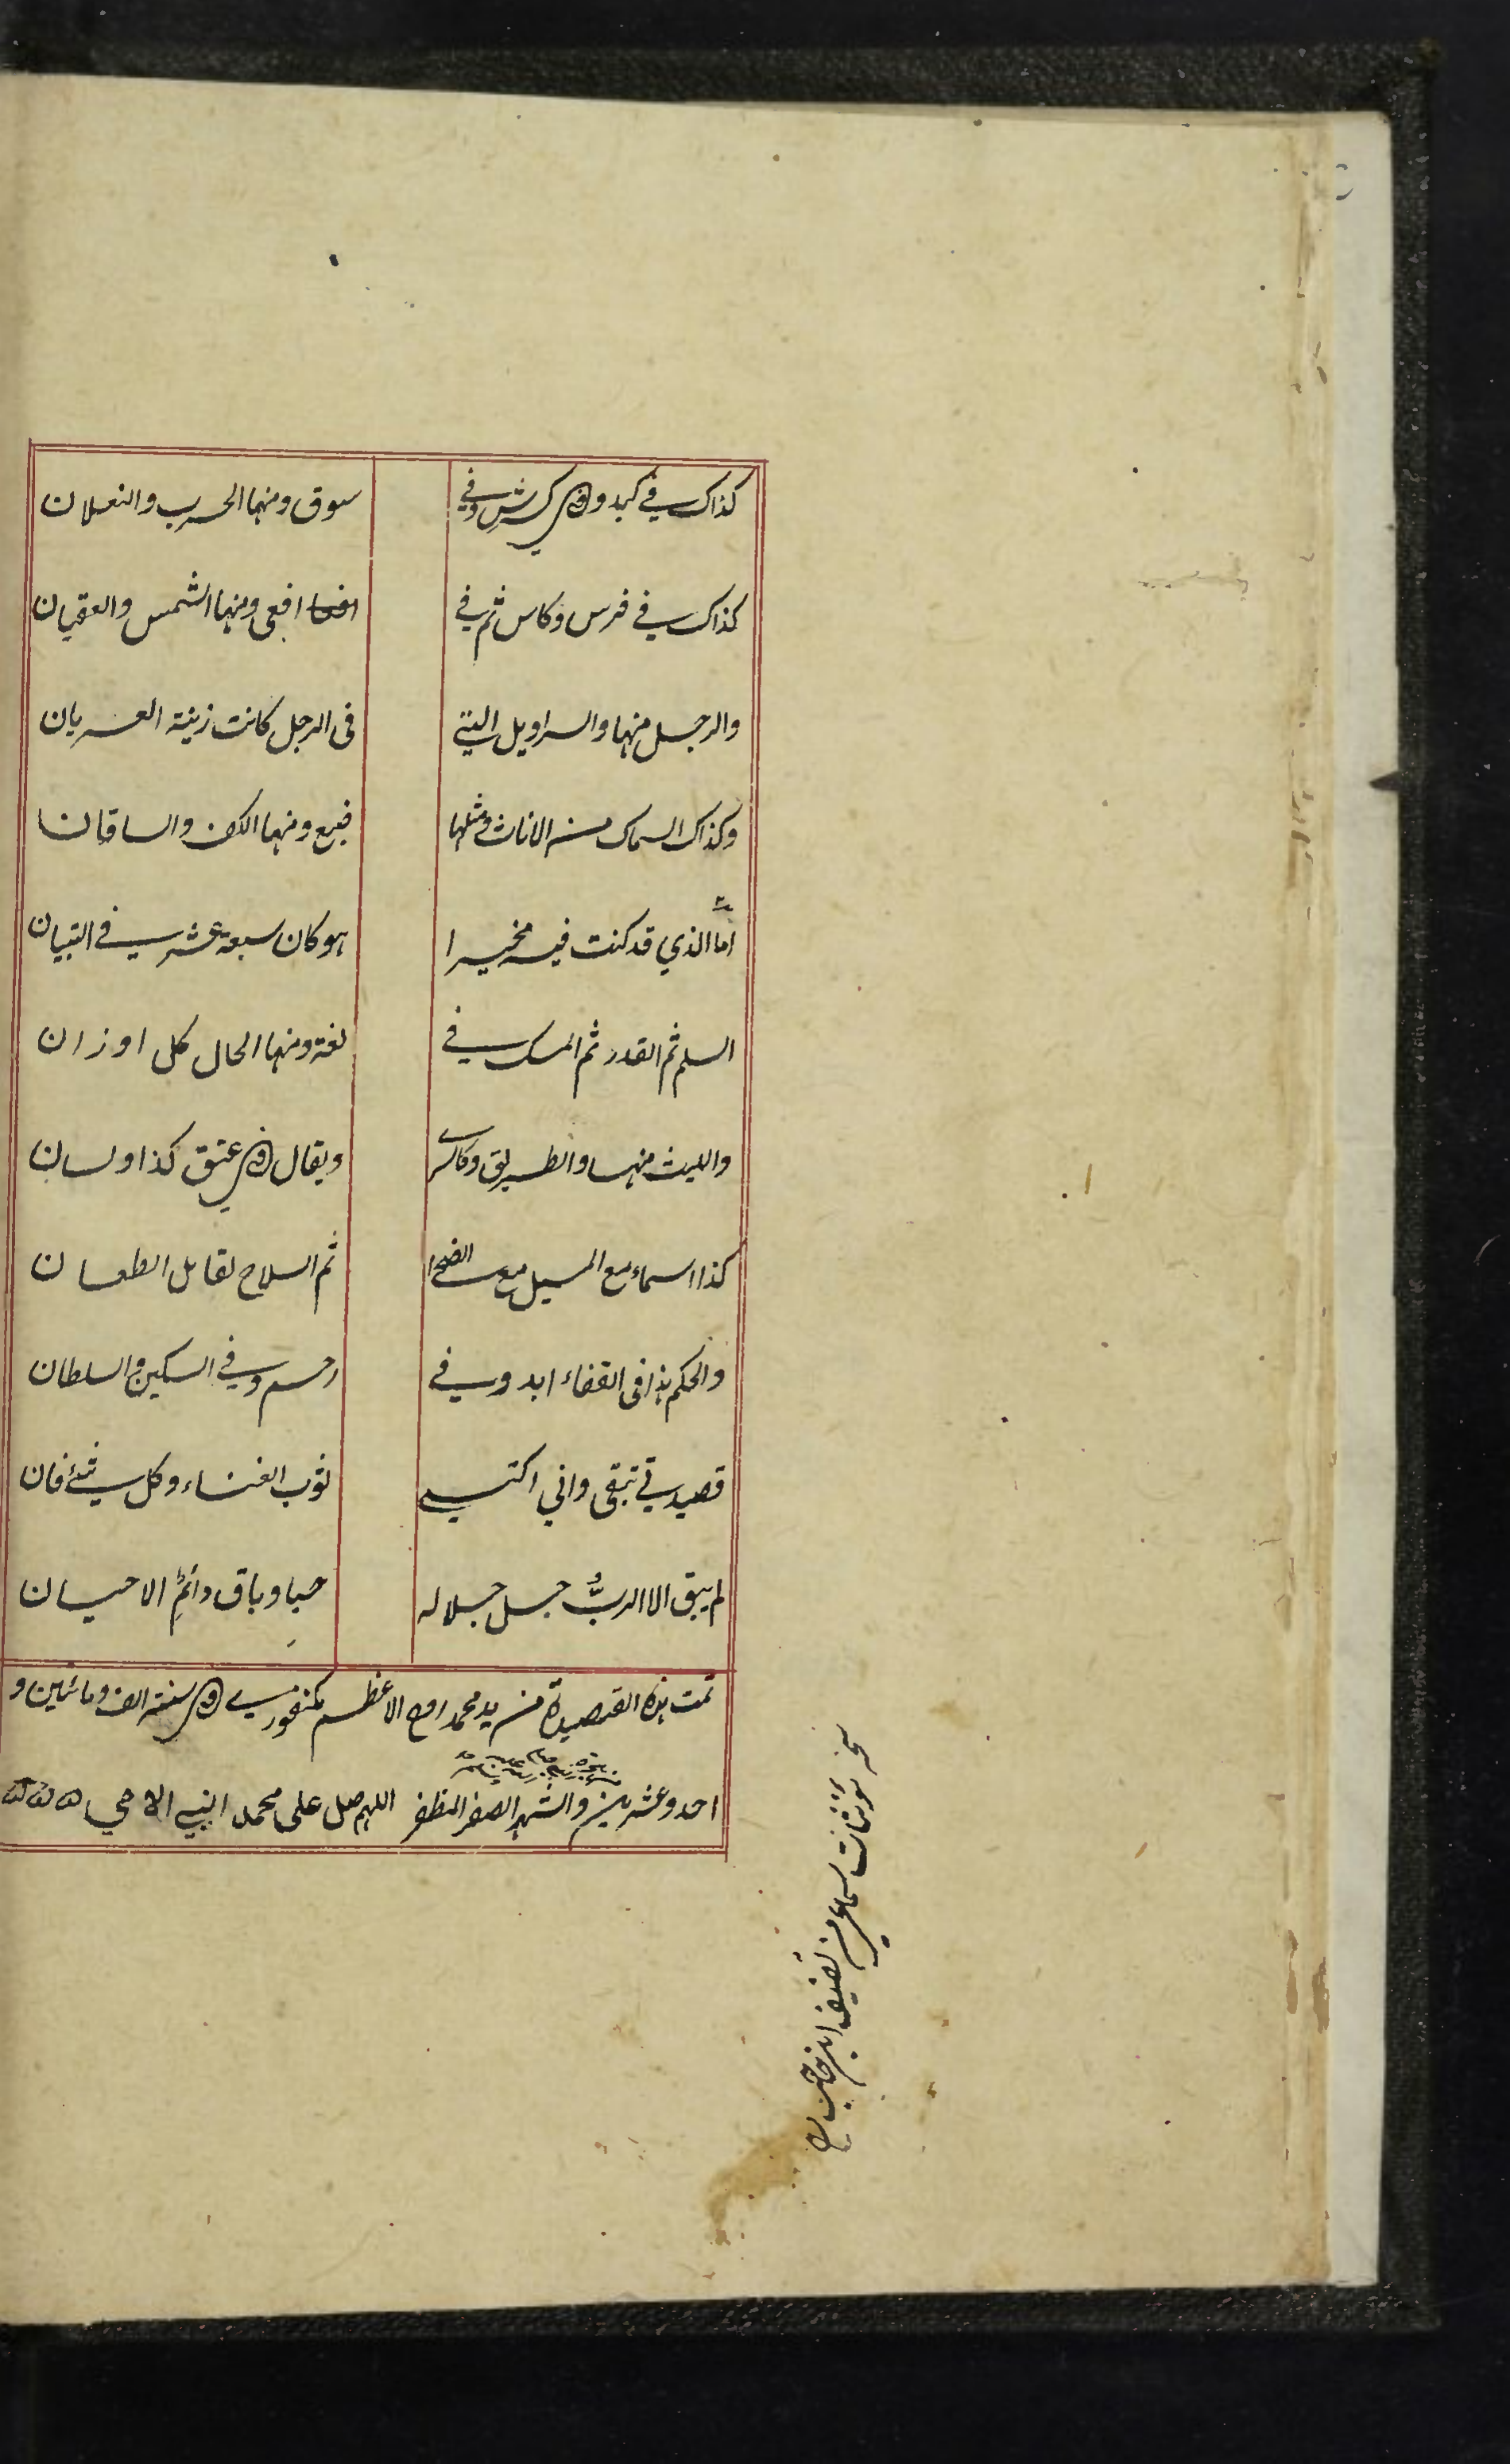 كذاك في كبد وفي كرش وفي سوق ومنها الحرب والنعلان
كذاك في فرس وكاس ثم في افعى ومنها الشمس والعقبان
والرجل منها والسراويل التي فى الرجل كانت زينة العريان
وكذاك السماك من الاناث ومثلها ضبع ومنها الكف والساقان
اما الذي قد كنت فيه مخيرا هو كان سبعة عشر في التبيان
السلم ثم القدر ثم المسك في لغة ومنها الحال كل اوزان
والليث منها والطريق وكالسرى ويقال في عنق كذا ولسان
كذا اسماء مع السبيل مع الضحا ثم السلاح لقاتل الطعان
والحكم هذا فى القفاء ابد وفي رحم وفي السكين والسلطان
قصيدتي تبقى واني اكتسي ثوب الفناء وكل شيء فان
لم يبق الا الرب جل جلاله حيا وباق دائم الاحسان
تمت هذه القصيدة من يد محمد روح الاعظم في سنة الف ومائتين و
احد وعشرين والشهر الصفر المظفر اللهم صل على محمد النبي الامي
مؤنثات سماعي من تصنيف ابن حاجب